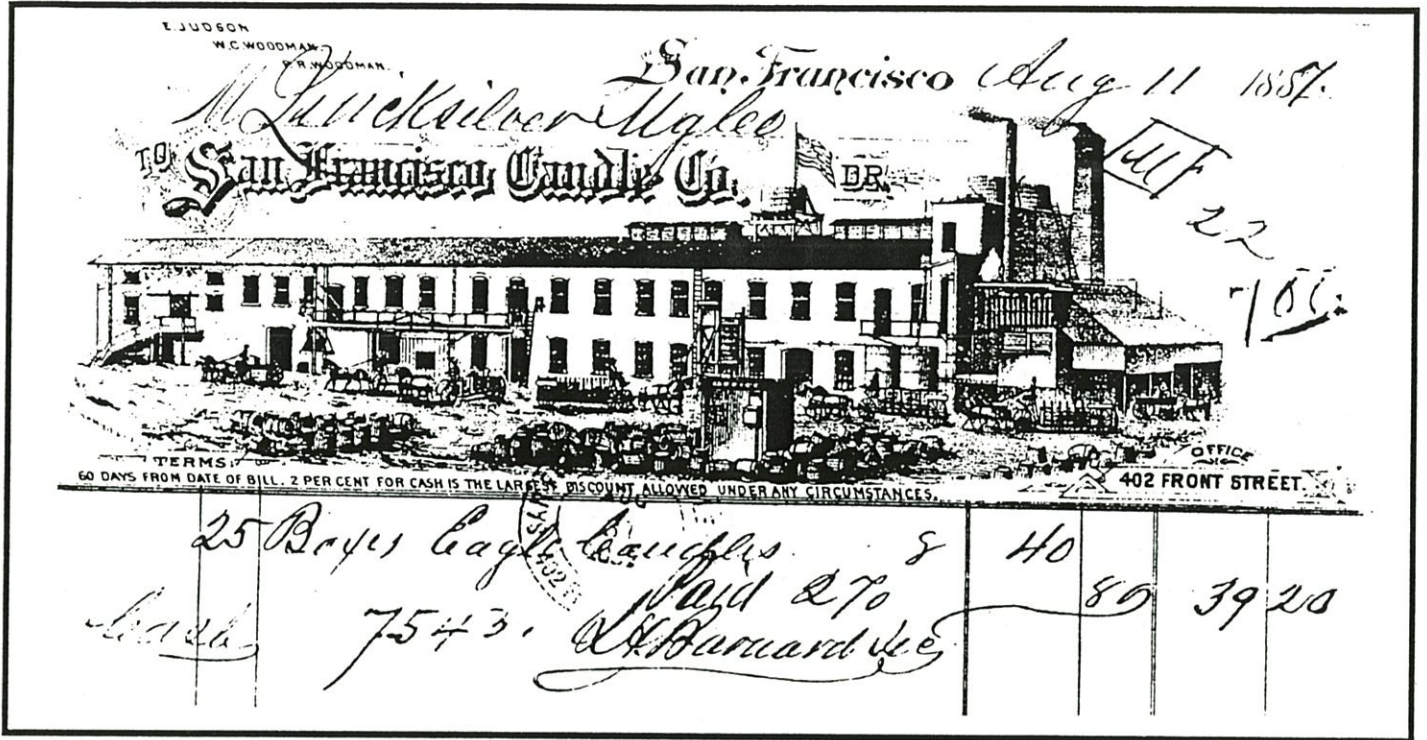 E. JUDSON
W.C. WOODMAN.
R.R. WOODMAN.
San Francisco Aug 11 1887.
M Quicksilver Mg Co
TO San Francisco Candle Co. DR.
22
OFFICE
402 FRONT STREET.
TERMS:
60 DAYS FROM DATE OF BILL. 2 PER CENT FOR CASH IS THE LARGEST DISCOUNT ALLOWED UNDER ANY CIRCUMSTANCES.
25 Boxes Eagle Candles 8 40
Paid 2% 80 39 20
Cash 7543. Barnard Sec